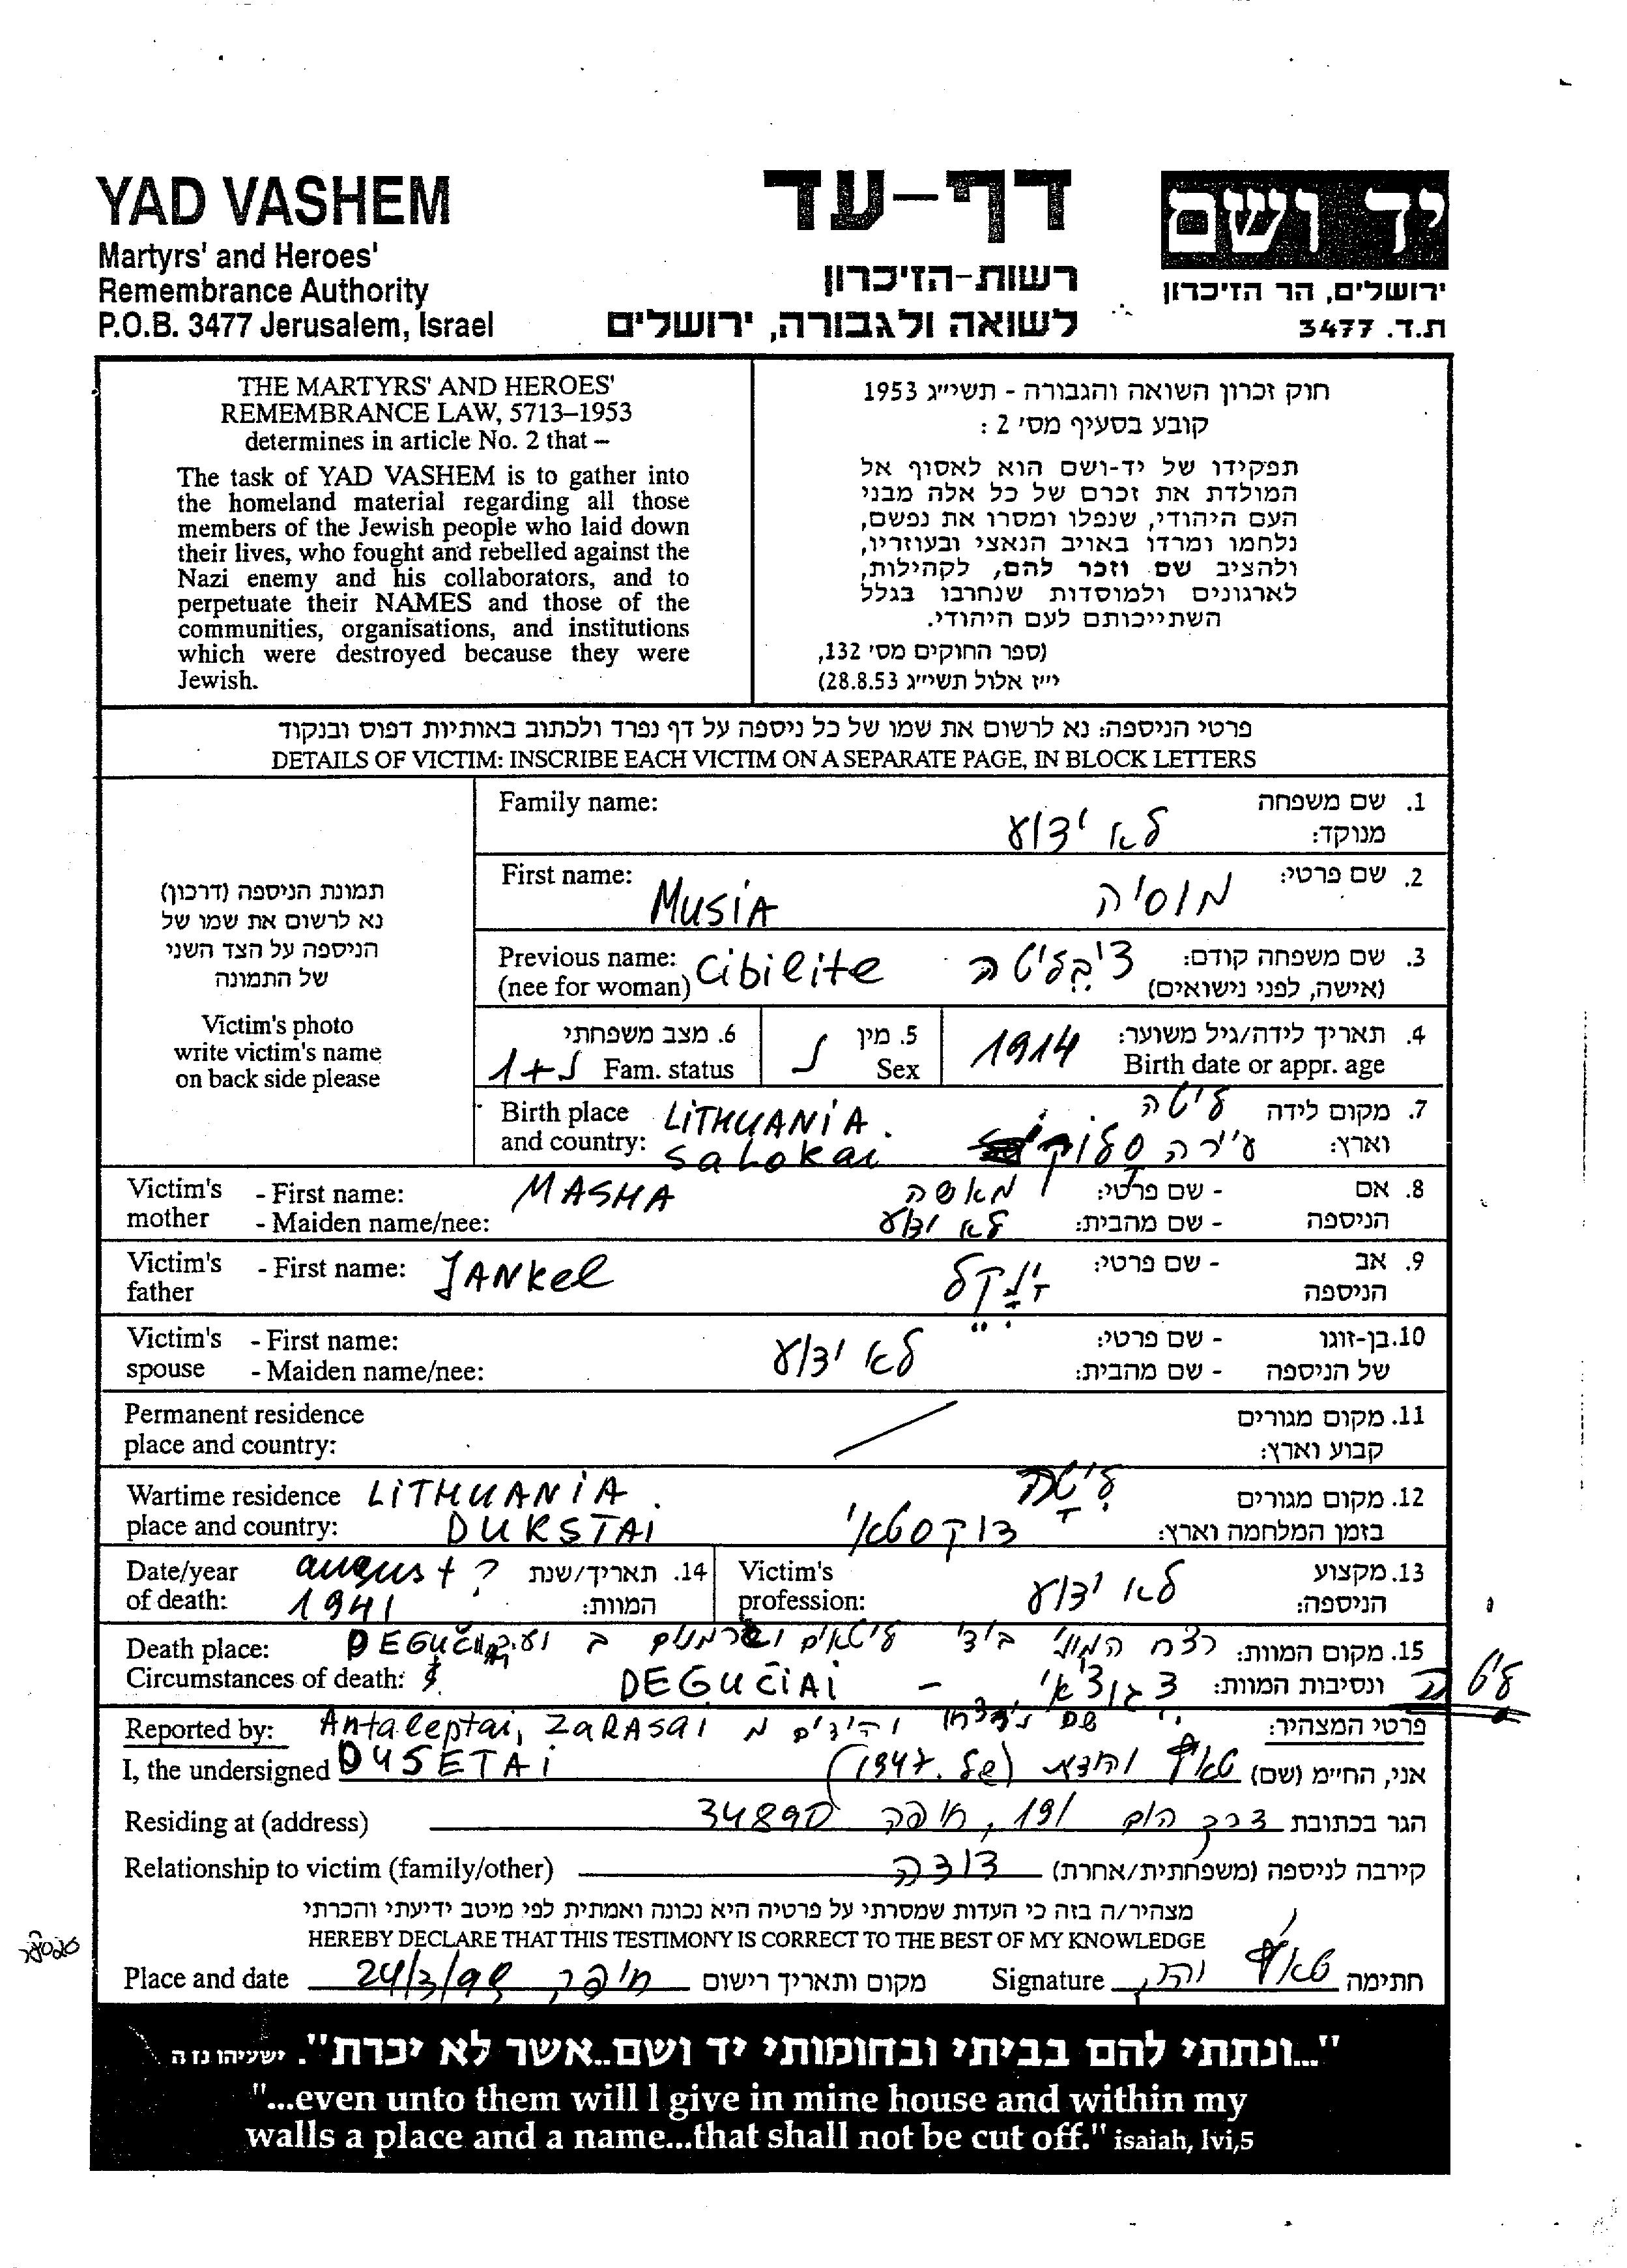 YAD VASHEM
Martyrs' and Heroes'
Remembrance Authority
P.O.B. 3477 Jerusalem, Israel
דף-עד
רשות-הזיכרון
לשואה ולגבורה, ירושלים
יד ושם
ירושלים, הר הזיכרון
ת.ד. 3477
THE MARTYRS' AND HEROES'
REMEMBRANCE LAW, 5713–1953
determines in article No. 2 that –
The task of YAD VASHEM is to gather into
the homeland material regarding all those
members of the Jewish people who laid down
their lives, who fought and rebelled against the
Nazi enemy and his collaborators, and to
perpetuate their NAMES and those of the
communities, organisations, and institutions
which were destroyed because they were
Jewish.
חוק זכרון השואה והגבורה - תשי״ג 1953
קובע בסעיף מס׳ 2 :
תפקידו של יד-ושם הוא לאסוף אל
המולדת את זכרם של כל אלה מבני
העם היהודי, שנפלו ומסרו את נפשם,
נלחמו ומרדו באויב הנאצי ובעוזריו,
ולהציב שם וזכר להם, לקהילות,
לארגונים ולמוסדות שנחרבו בגלל
השתייכותם לעם היהודי.
(ספר החוקים מס׳ 132,
י״ז אלול תשי״ג 28.8.53)
פרטי הניספה: נא לרשום את שמו של כל ניספה על דף נפרד ולכתוב באותיות דפוס ובנקוד
DETAILS OF VICTIM: INSCRIBE EACH VICTIM ON A SEPARATE PAGE, IN BLOCK LETTERS
תמונת הניספה (דרכון)
נא לרשום את שמו של
הניספה על הצד השני
של התמונה
Victim's photo
write victim's name
on back side please
Family name: לא ידוע 1. שם משפחה
מנוקד:
First name: MUSIA מוסיה 2. שם פרטי:
Previous name: Cibilite ציבליטה 3. שם משפחה קודם:
(nee for woman) (אישה, לפני נישואים)
1+1 6. מצב משפחתי 5. מין 1914 4. תאריך לידה/גיל משוער:
Fam. status Sex Birth date or appr. age
Birth place LITHUANIA. ליטה 7. מקום לידה
and country: Salokai עירה סלוק וארץ:
Victim's - First name: MASHA מאשה - שם פרטי: 8. אם
mother - Maiden name/nee: לא ידוע - שם מהבית: הניספה
Victim's - First name: JANKEL ינקל - שם פרטי: 9. אב
father הניספה
Victim's - First name: לא ידוע - שם פרטי: 10. בן-זוגו
spouse - Maiden name/nee: - שם מהבית: של הניספה
Permanent residence 11. מקום מגורים
place and country: קבוע וארץ:
Wartime residence LITHUANIA. ליטה 12. מקום מגורים
place and country: DUKSTAI דוקסטאי בזמן המלחמה וארץ:
Date/year august ? 14. תאריך/שנת Victim's 13. מקצוע
of death: 1941 המוות: profession: לא ידוע הניספה:
Death place: רצח המוני בידי ליטאים 15. מקום המוות:
Circumstances of death: DEGUČIAI - דגוצאי ונסיבות המוות: ליטה
Reported by: Antaleptai, ZARASAI שם פרטי המצהיר:
I, the undersigned DUSETAI (1947 של) טאיץ אני, החי״מ (שם)
Residing at (address) דרך הים 191, חיפה 34890 הגר בכתובת
Relationship to victim (family/other) דודה קירבה לניספה (משפחתית/אחרת)
מצהיר/ה בזה כי העדות שמסרתי על פרטיה היא נכונה ואמתית לפי מיטב ידיעתי והכרתי
HEREBY DECLARE THAT THIS TESTIMONY IS CORRECT TO THE BEST OF MY KNOWLEDGE
Place and date 24/3/98 חיפה מקום ותאריך רישום Signature חתימה
"...ונתתי להם בביתי ובחומותי יד ושם..אשר לא יכרת". ישעיהו נז ה
"...even unto them will I give in mine house and within my
walls a place and a name...that shall not be cut off." isaiah, lvi,5